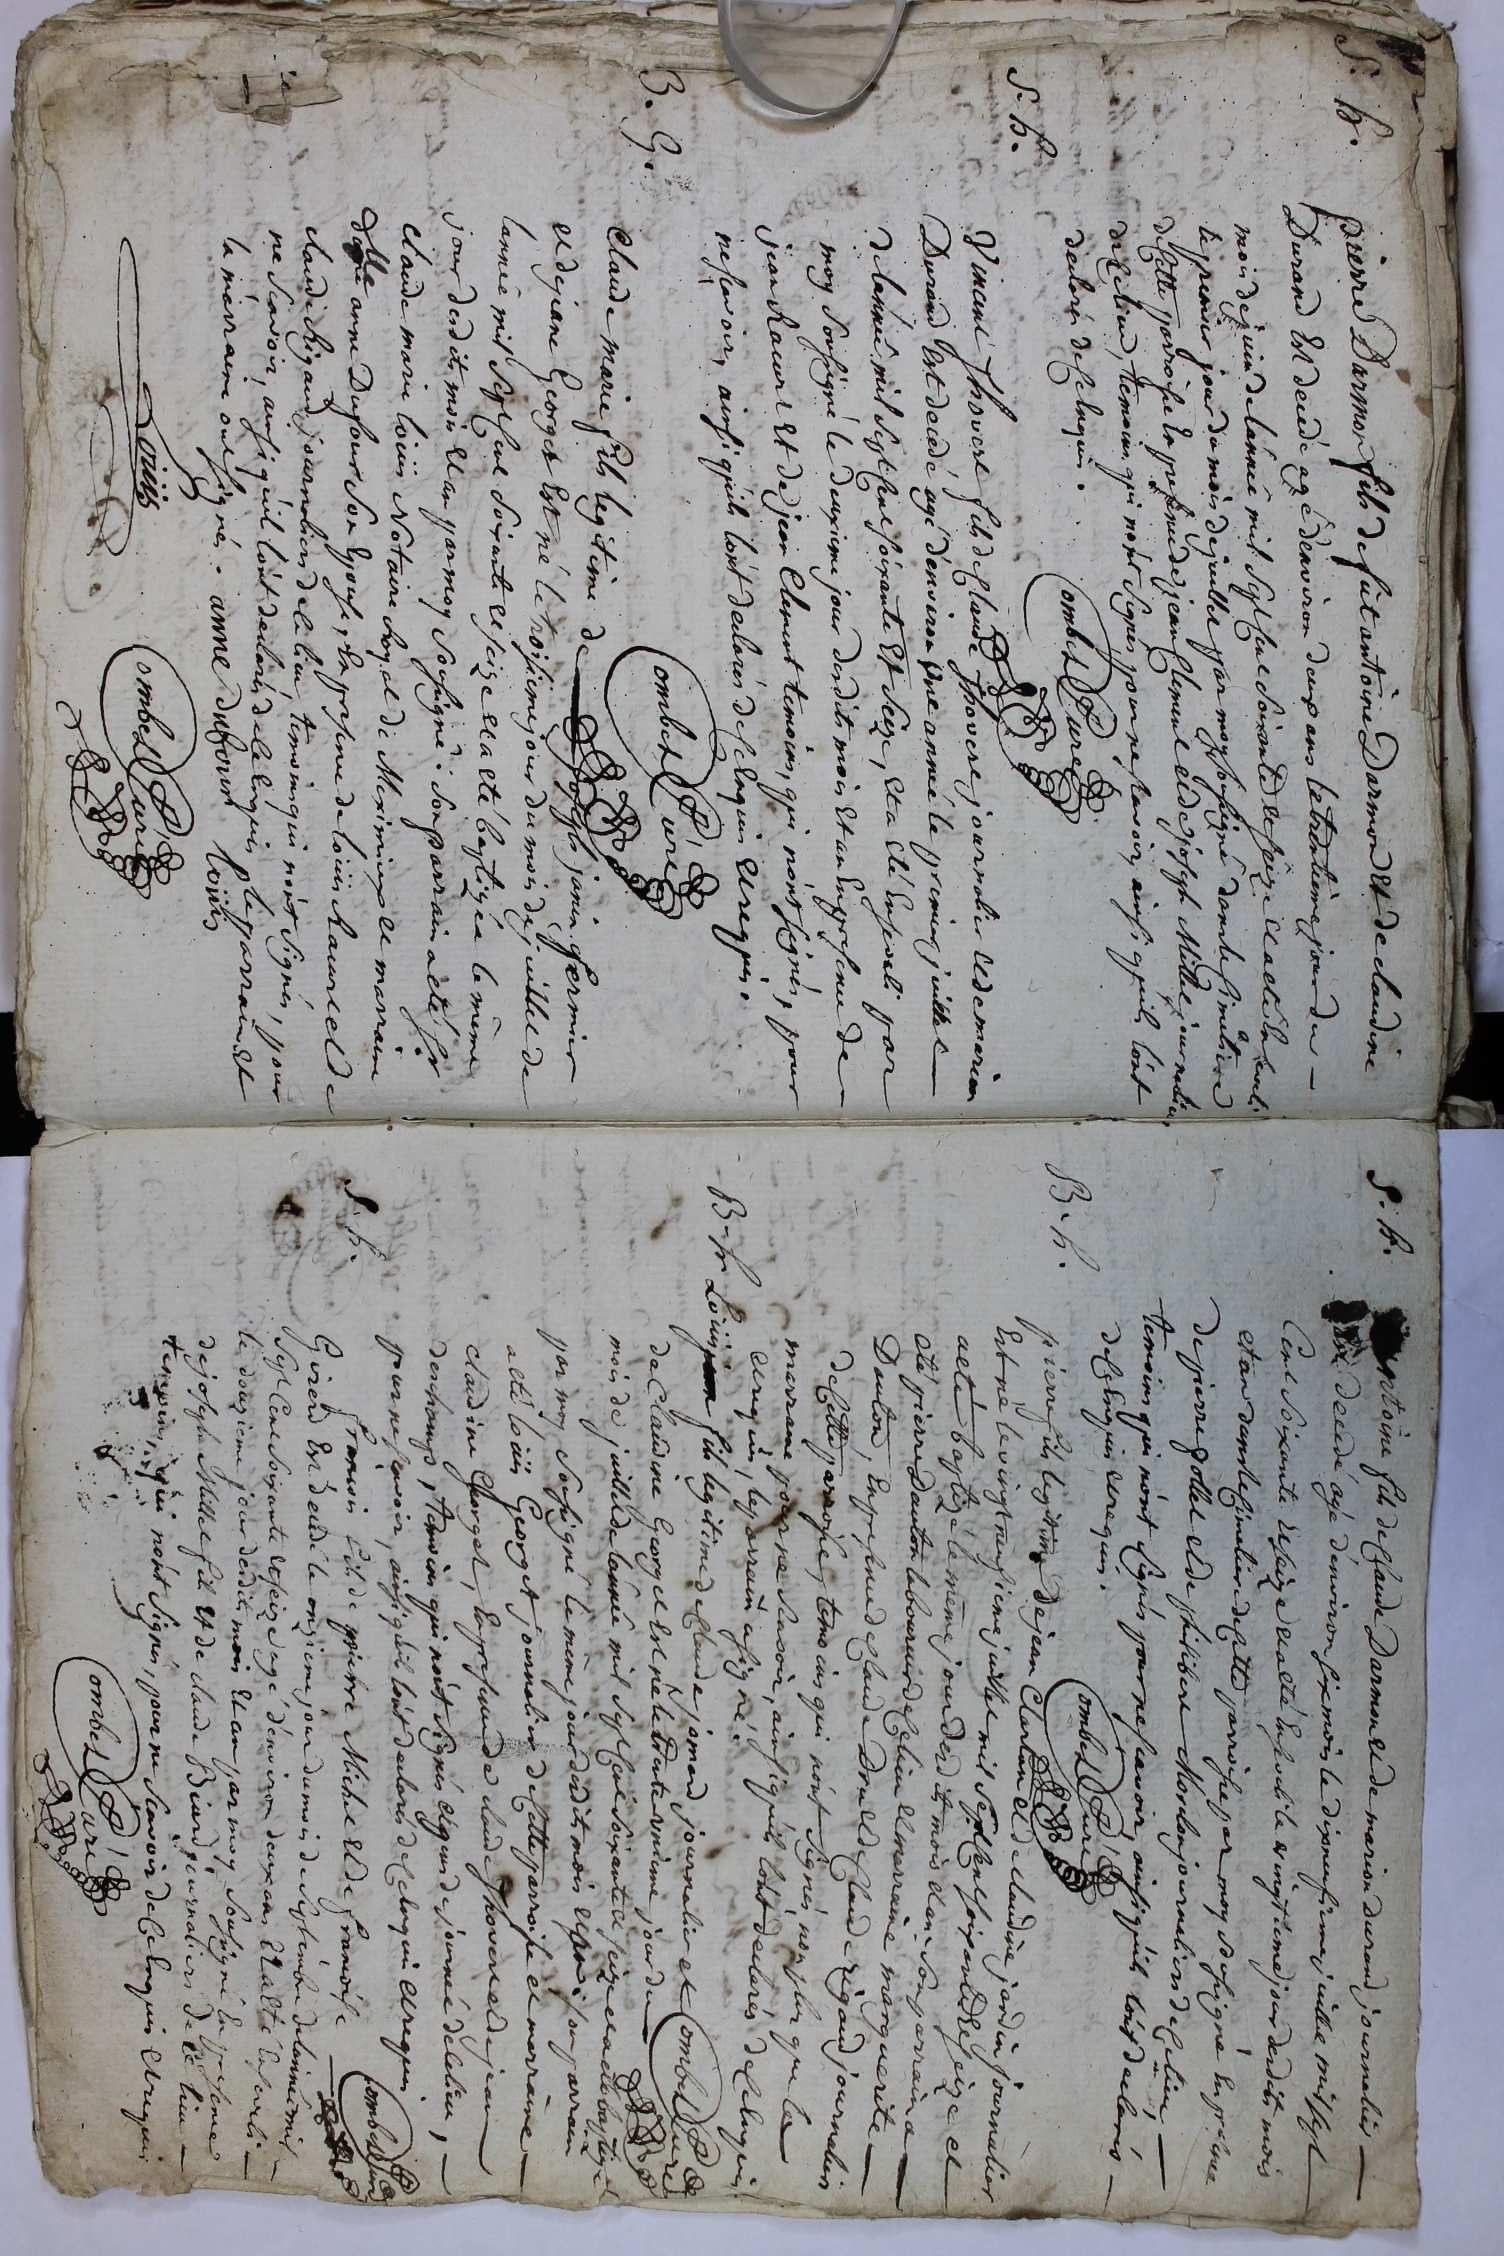 S. h.
pierre Darmon fils de fut antoine Darmon et de claudine
Durand Est decedé agé denviron deux ans le trentième jour du
mois de juin de lannée mil sept cent soixante et seize et a eté Enseveli
le premier jour du mois de juillet par moy soussigné dans le cimetiere
de cette parroisse En presence de jean Clement et de joseph Millet journaliers
de ce lieu, temoins qui n'ont signés pour ne scavoir, ainsi qu'ils l'ont
declarés de ce Enquis.
Combet Curé
S. h.
Vincent Thovere fils de Claude Thovere journalier et de marion
Durand Est decedé agé d'environ une année le premier juillet
de lannée mil sept cent soixante et seize, et a eté Enseveli par
moy soussigné le deuxieme jour desdits mois et an En presence de
jean Raur et de jean Clement temoins, qui n'ont signés, pour
ne scavoir, ainsi qu'ils l'ont declarés de ce Enquis et requis.
Combet Curé
B. G.
Claude marie fils legitime de joseph janin fermier
et de jeane Georget Est né le troisieme jour du mois de juillet de
lanneé mil sept cent soixante et seize et a eté baptizée le même
jour desdits mois et an par moy soussigné. son parrain a eté sr
claude marie loüis Notaire Royal de Meximieux et marraine
delle anne Dufour son Epouse, En presence de loüis Raur et de
claude Rigaud journaliers de ce lieu, temoins qui n'ont signés, pour
ne scavoir, ainsi qu'ils l'ont declarés de ce Enquis, le parrain et
la mârraine ont signés. anne dufour loüis
Loüis
Combet Curé
S. h.
antoine fils de Claude Darmon et de marion durand journalier
est decedé agé d'environ six mois le dixneufieme juillet mil sept
Cent soixante et seize et a eté Enseveli le vingtieme jour desdits mois
et an dans le cimetiere de cette parroisse par moy soussigné En presence
de pierre golle et de philibert Morlon journaliers de ce lieu,
temoins qui n'ont signés pour ne scavoir, ainsi qu'ils l'ont declarés
de ce Enquis et requis.
Combet Curé
B. h.
pierre fils legitime de jean Clarlon et de claudine jardin journalier
Est né le vingtneufieme juillet mil sept cent soixante et seize et
a eté baptizé le même jour desdits mois et an. son parrain a
eté pierre Dauton laboureur de ce lieu et marraine marguerite
Dauton, En presence de Claude Dru et de Claude rigaud journaliers
de cette parroisse, temoins qui n'ont signés non plus que la
marraine pour ne scavoir, ainsi qu'ils l'ont declarés de ce Enquis
et requis, le parrain a signé.
Combet Curé
B. h.
Loüis fils legitime de Claude jomard journalier et
de Claudine Georget est né le trente unieme jour du
mois de juillet de lannée mil sept cent soixante et seize et a eté baptizé
par moy soussigné le même jour desdits mois et an. son parrain
a eté loüis Georget journalier de cette parroisse et marraine
claudine Georget, En presence de claude Thovere et de jean
deschamps, temoins qui n'ont signés de ce lieu,
pour ne scavoir, ainsi qu'ils l'ont declarés de ce Enquis et requis
Combet Curé
S. h.
francois fils de pierre Michel et de francoise
Girerd Est decedé le onzieme jour du mois de septembre de lannée mil
sept Cent soixante et seize agé d'environ deux ans et a eté Enseveli
le douzieme jour desdits mois et an par moy soussigné En presence
de joseph Millet fils et de claude Biard journaliers de ce lieu
temoins, qui n'ont signés, pour ne scavoir de ce Enquis et requis
Combet Curé